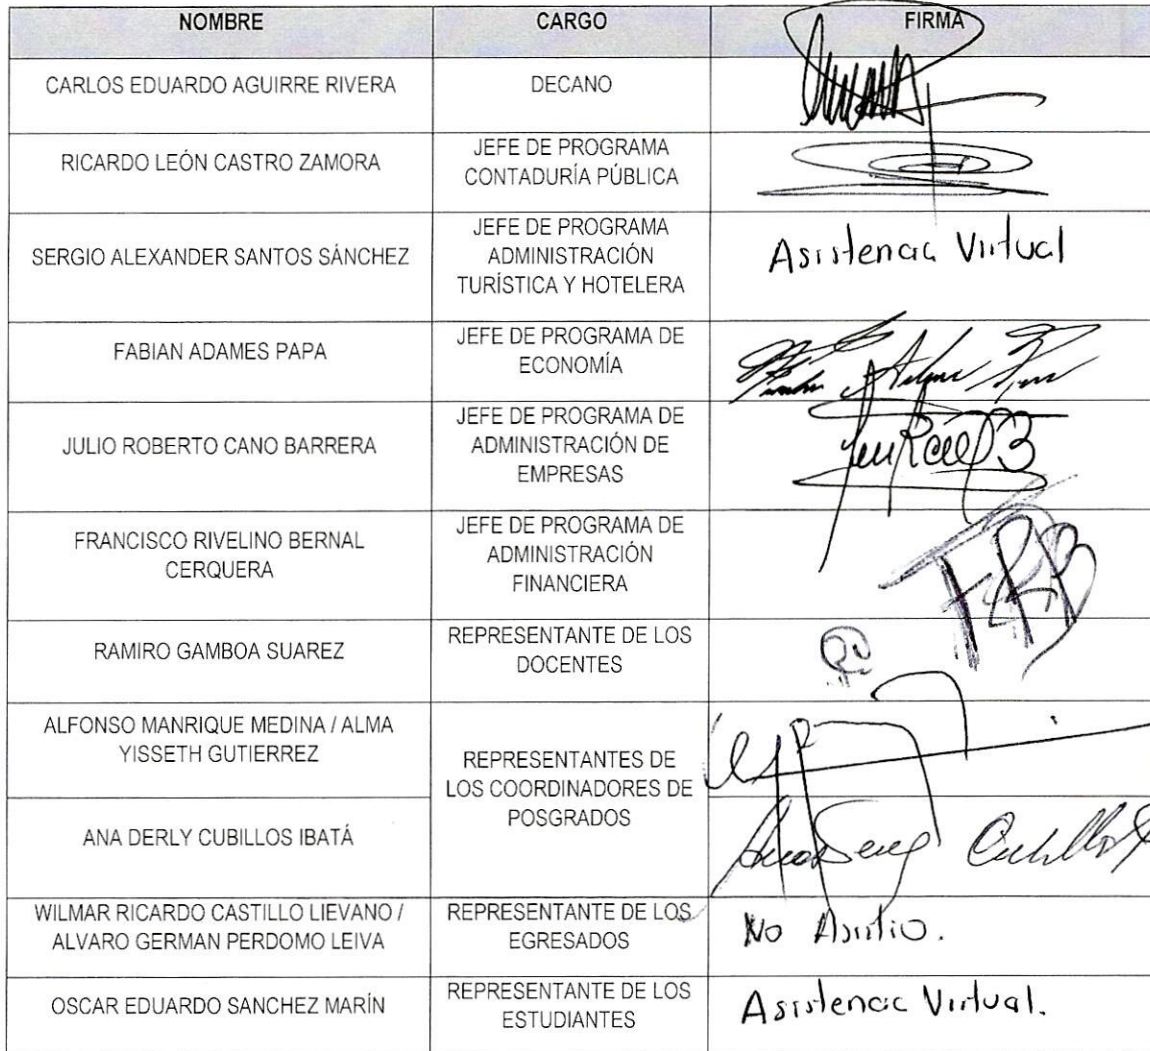 NOMBRE CARGO FIRMA
CARLOS EDUARDO AGUIRRE RIVERA DECANO
RICARDO LEÓN CASTRO ZAMORA
JEFE DE PROGRAMA
CONTADURÍA PÚBLICA
SERGIO ALEXANDER SANTOS SÁNCHEZ
JEFE DE PROGRAMA
ADMINISTRACIÓN
TURÍSTICA Y HOTELERA
Asistencia Virtual
FABIAN ADAMES PAPA
JEFE DE PROGRAMA DE
ECONOMÍA
JULIO ROBERTO CANO BARRERA
JEFE DE PROGRAMA DE
ADMINISTRACIÓN DE
EMPRESAS
FRANCISCO RIVELINO BERNAL
CERQUERA
JEFE DE PROGRAMA DE
ADMINISTRACIÓN
FINANCIERA
FRB
RAMIRO GAMBOA SUAREZ
REPRESENTANTE DE LOS
DOCENTES
ALFONSO MANRIQUE MEDINA / ALMA
YISSETH GUTIERREZ
REPRESENTANTES DE
LOS COORDINADORES DE
POSGRADOS
ANA DERLY CUBILLOS IBATÁ
WILMAR RICARDO CASTILLO LIEVANO /
ALVARO GERMAN PERDOMO LEIVA
REPRESENTANTE DE LOS
EGRESADOS
No Asistio.
OSCAR EDUARDO SANCHEZ MARÍN
REPRESENTANTE DE LOS
ESTUDIANTES
Asistencia Virtual.